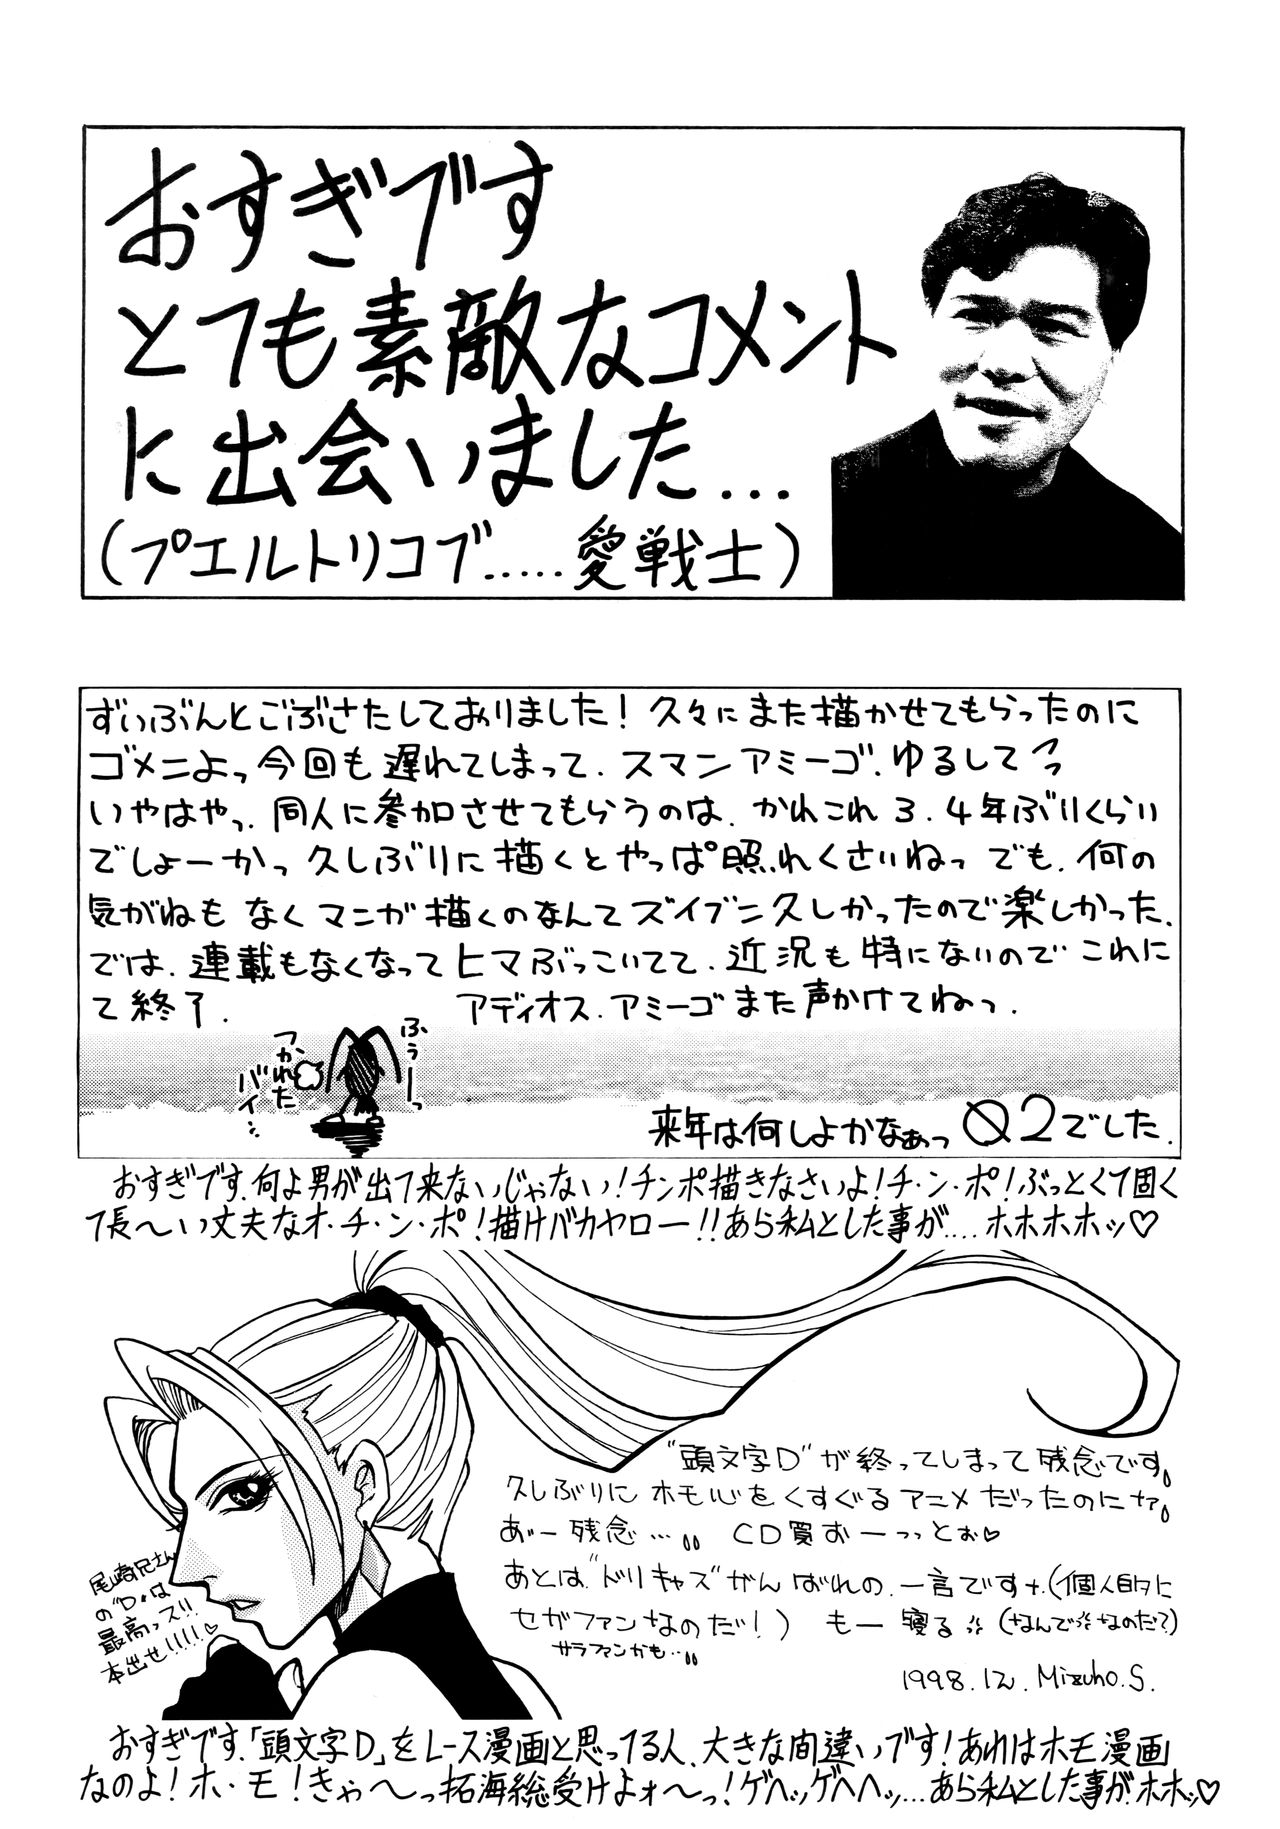 おすぎです
とても素敵なコメント
に出会いました...
(プエルトリコブ.....愛戦士)
ずいぶんとごぶさたしておりました! 久々にまた描かせてもらったのに
ゴメニよっ今回も遅れてしまって、スマンアミーゴ、ゆるしてっ
いやはやっ、同人に参加させてもらうのは、かれこれ3、4年ぶりくらい
でしょーかっ 久しぶりに描くとやっぱ照れくさいねっ でも、何の
気がねもなくマンガ描くのなんてズイブン久しかったので楽しかった、
では、連載もなくなってヒマぶっこいてて、近況も特にないのでこれに
て終了. アディオス、アミーゴまた声かけてねっ.
ふぅーっ
つかれた
バイ...
来年は何しよかなぁっ Q2でした.
おすぎです、何よ男が出て来ないじゃない!チンポ描きなさいよ!チ・ン・ポ!ぶっとくて固く
て長〜い丈夫なオ・チ・ン・ポ!描けバカヤロー!!あら私とした事が....ホホホホッ♡
"頭文字D"が終ってしまって残念です。
久しぶりにホモ心をくすぐるアニメだったのにナァ。
あー残念... CD買おーっっとぉ♡
あとは"ドリキャス"がんばれの、一言ですナ.(個人的に
セガファンなのだ!) もー寝る (なんで なのだ?)
サラファンかも...
尾崎兄さん
の"D"は
最高っス!!
本出せ!!!!♡
1998.12. Mizuho.S.
おすぎです、「頭文字D」をレース漫画と思ってる人、大きな間違いです!あれはホモ漫画
なのよ!ホ・モ!きゃ〜っ拓海総受けよォ〜っ!ゲヘッゲヘヘッ...あら私とした事が、ホホッ♡